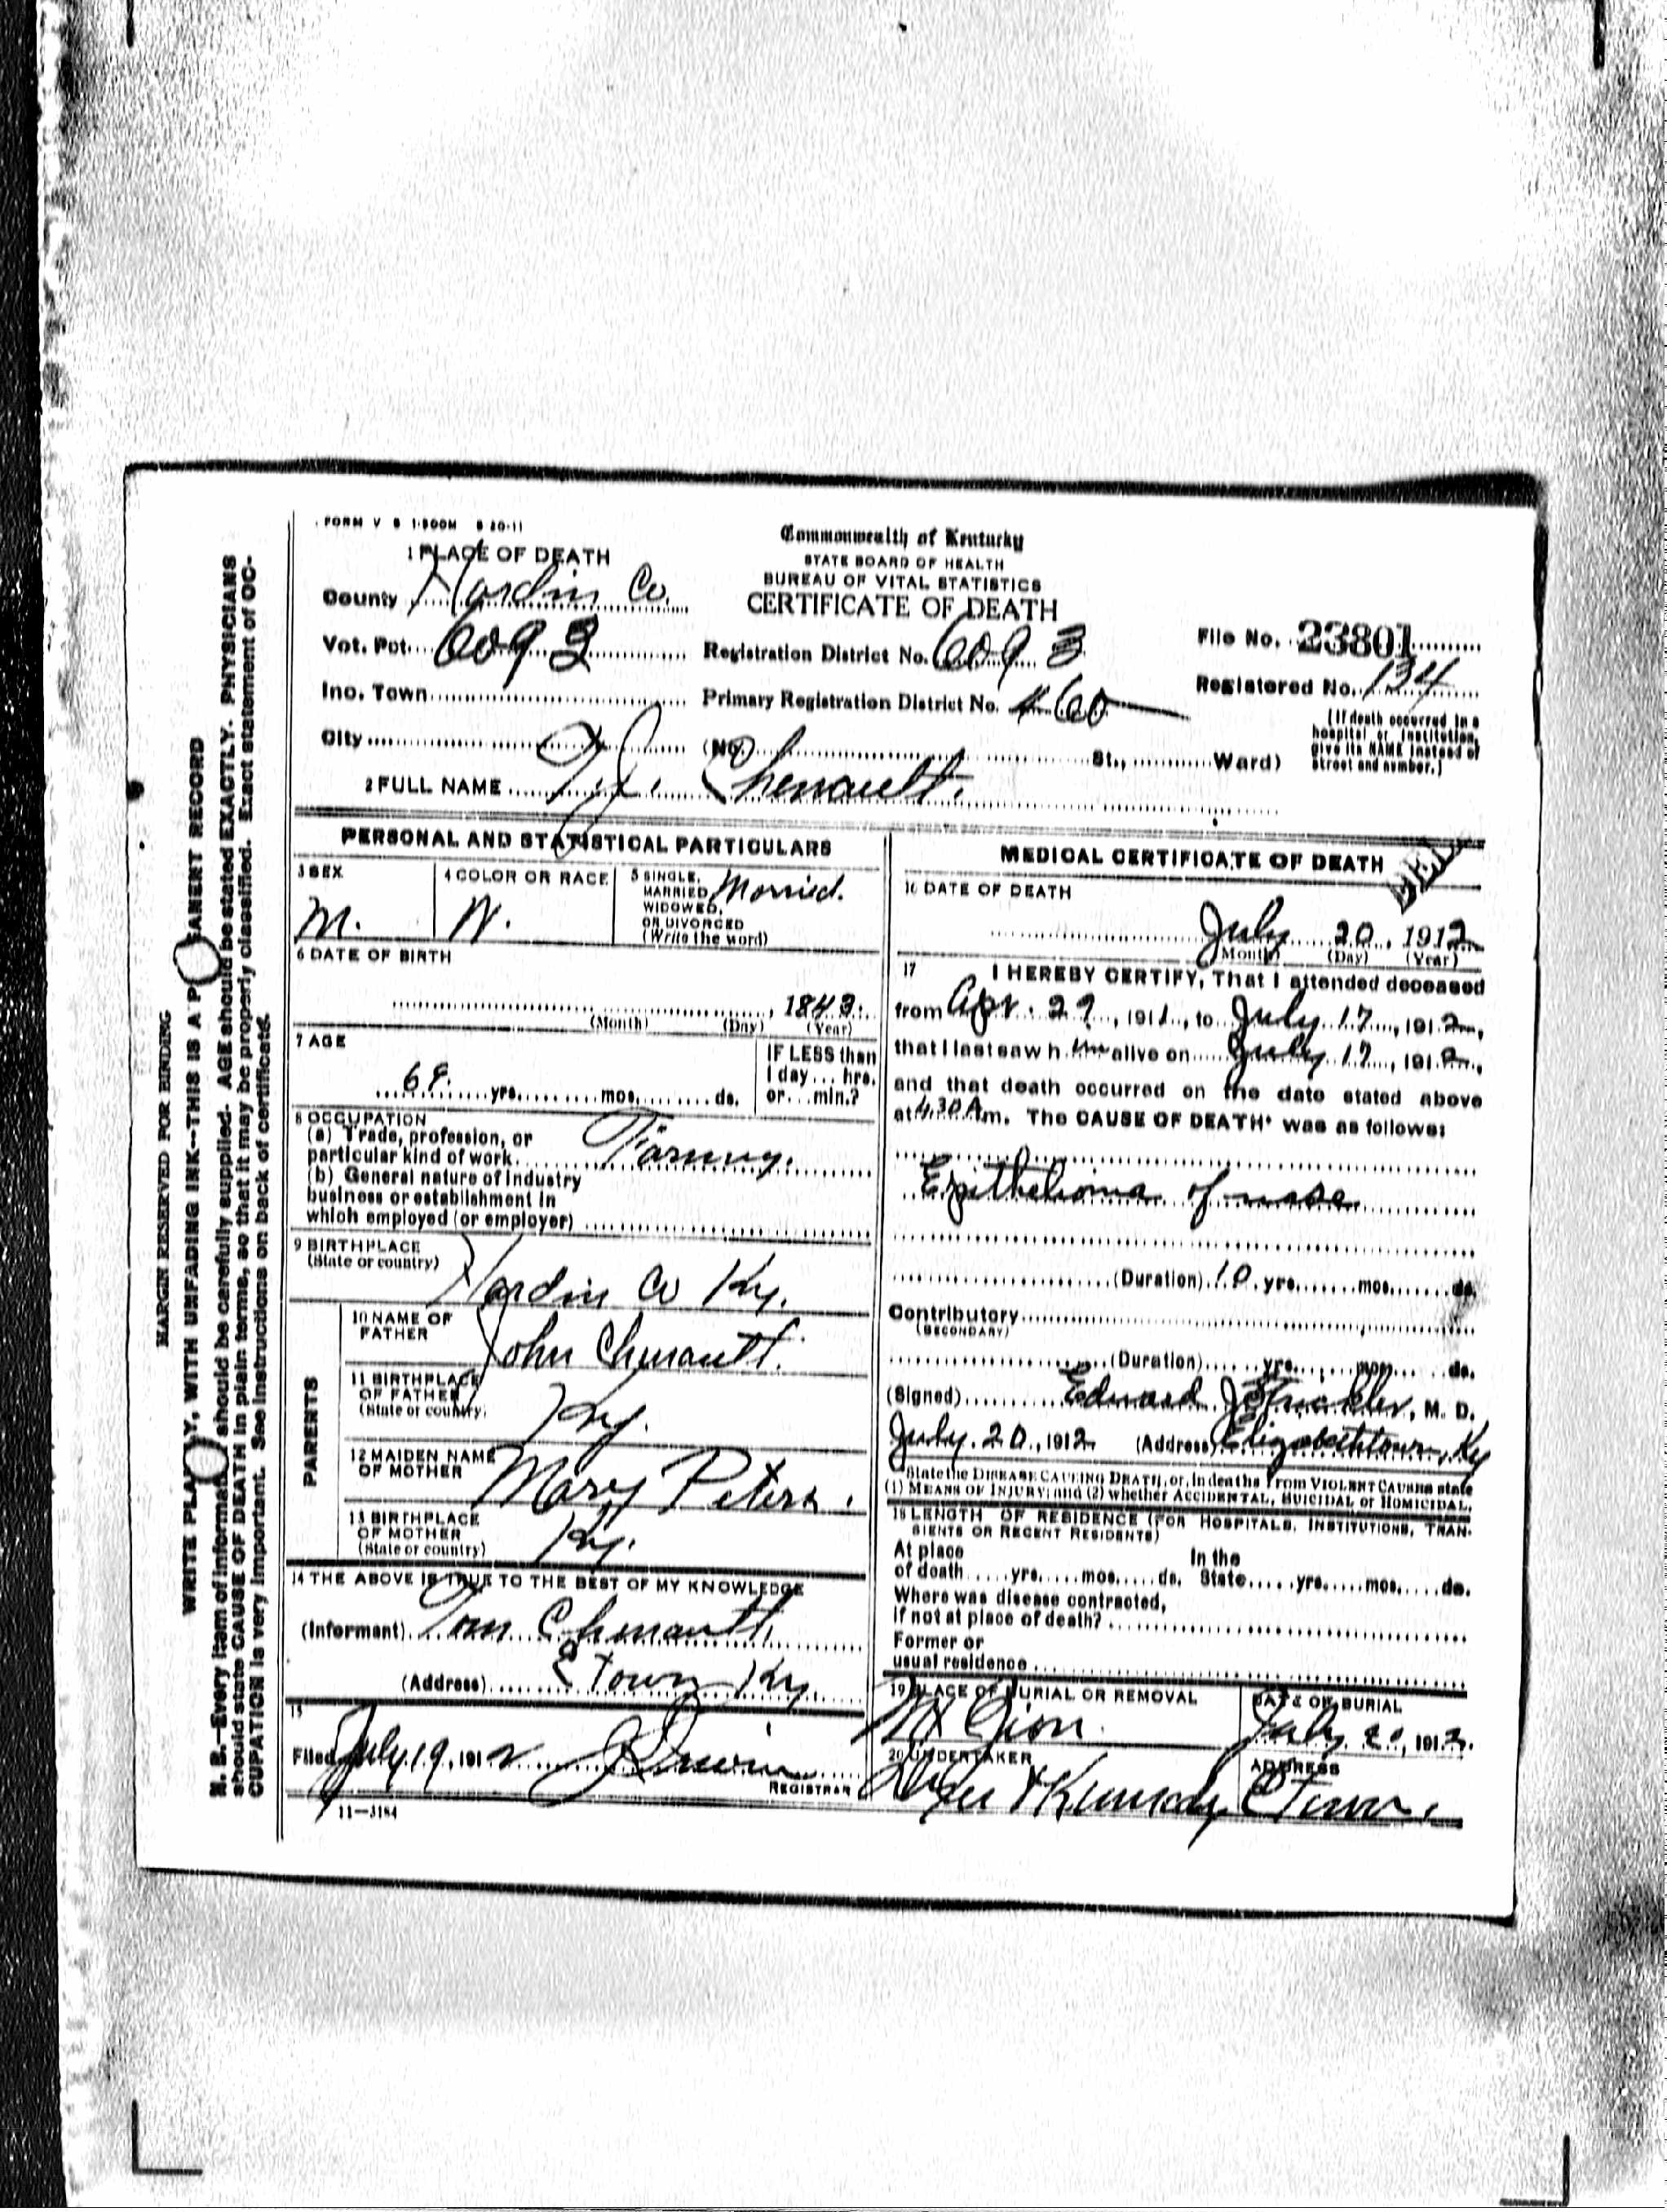 FORM V S 1-500M 8 20-11
Commonwealth of Kentucky
STATE BOARD OF HEALTH
BUREAU OF VITAL STATISTICS
CERTIFICATE OF DEATH
1 PLACE OF DEATH
County Hardin Co.
Vot. Pct. 6093
Registration District No. 6093
File No. 23801
Inc. Town
Primary Registration District No. 460
Registered No. 134
City (No. St., Ward)
(If death occurred in a
hospital or institution,
give its NAME instead of
street and number.)
2 FULL NAME T. J. Chenault.
PERSONAL AND STATISTICAL PARTICULARS
3 SEX
M.
4 COLOR OR RACE
W.
5 SINGLE,
MARRIED,
WIDOWED,
OR DIVORCED
(Write the word)
Married.
6 DATE OF BIRTH
1843.
(Month) (Day) (Year)
7 AGE
69. yrs. mos. ds.
IF LESS than
1 day... hrs.
or... min.?
8 OCCUPATION
(a) Trade, profession, or
particular kind of work
(b) General nature of industry
business or establishment in
which employed (or employer)
9 BIRTHPLACE
(State or country)
Hardin Co Ky.
PARENTS
10 NAME OF
FATHER
John Chenault.
11 BIRTHPLACE
OF FATHER
(State or country)
Ky.
12 MAIDEN NAME
OF MOTHER
Mary Peters.
13 BIRTHPLACE
OF MOTHER
(State or country)
Ky.
14 THE ABOVE IS TRUE TO THE BEST OF MY KNOWLEDGE
(Informant) Tom Chenault
(Address) E Town Ky.
15
Filed July 19, 1912
REGISTRAR
11-3184
MEDICAL CERTIFICATE OF DEATH
16 DATE OF DEATH
July 20, 1912
(Month) (Day) (Year)
17 I HEREBY CERTIFY, That I attended deceased
from Apr. 29, 1911, to July 17, 1912,
that I last saw him alive on July 17, 1912,
and that death occurred on the date stated above
at 4.30 A m. The CAUSE OF DEATH* was as follows:
Epithelioma of nose
(Duration) 10 yrs. mos. ds.
Contributory
(SECONDARY)
(Duration) yrs. mos. ds.
(Signed) Edward J Strickler, M. D.
July 20, 1912 (Address) Elizabethtown, Ky
*State the DISEASE CAUSING DEATH, or, in deaths from VIOLENT CAUSES state
(1) MEANS OF INJURY; and (2) whether ACCIDENTAL, SUICIDAL or HOMICIDAL.
18 LENGTH OF RESIDENCE (FOR HOSPITALS, INSTITUTIONS, TRAN-
SIENTS OR RECENT RESIDENTS)
At place
of death yrs. mos. ds.
In the
State yrs. mos. ds.
Where was disease contracted,
if not at place of death?
Former or
usual residence
19 PLACE OF BURIAL OR REMOVAL
Mt Zion.
DATE OF BURIAL
July 20, 1912.
20 UNDERTAKER
ADDRESS
E Town.
MARGIN RESERVED FOR BINDING
WRITE PLAINLY, WITH UNFADING INK--THIS IS A PERMANENT RECORD
N. B.--Every item of information should be carefully supplied. AGE should be stated EXACTLY. PHYSICIANS
should state CAUSE OF DEATH in plain terms, so that it may be properly classified. Exact statement of OC-
CUPATION is very important. See instructions on back of certificate.